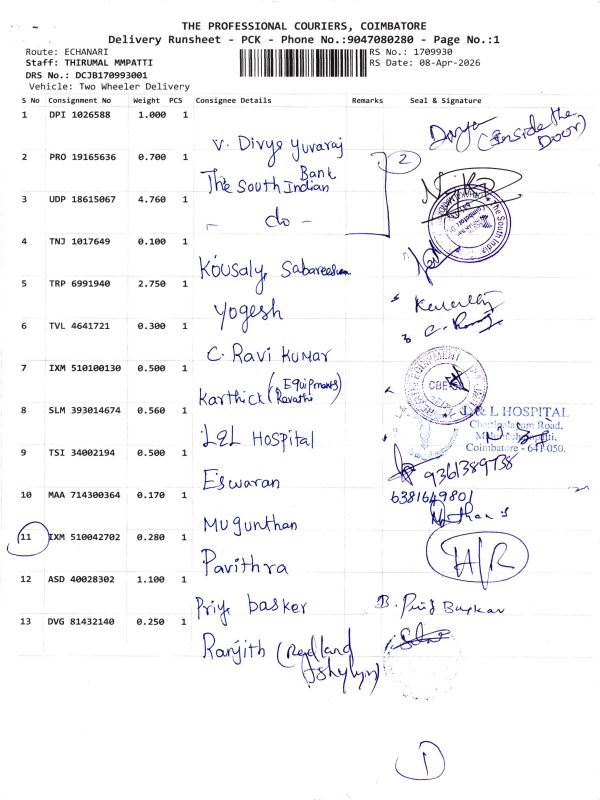 THE PROFESSIONAL COURIERS, COIMBATORE
Delivery Runsheet - PCK - Phone No.:9047080280 - Page No.:1
Route: ECHANARI RS No.: 1709930
Staff: THIRUMAL MMPATTI RS Date: 08-Apr-2026
DRS No.: DCJB170993001
Vehicle: Two Wheeler Delivery
S No Consignment No Weight PCS Consignee Details Remarks Seal & Signature
1 DPI 1026588 1.000 1 V. Divya Yuvaraj Divya (Inside the Door)
2 PRO 19165636 0.700 1 The South Indian Bank 2
3 UDP 18615067 4.760 1 - do - The South India
4 TNJ 1017649 0.100 1 Kousalya Sabareesan
5 TRP 6991940 2.750 1 Yogesh
6 TVL 4641721 0.300 1 C. Ravi Kumar
7 IXM 510100130 0.500 1 Karthick (Equipments Revathi) EQUIPMENT CBE
8 SLM 393014674 0.560 1 L&L Hospital L & L HOSPITAL
Chettipalayam Road,
Coimbatore - 641 050.
9 TSI 34002194 0.500 1 Eswaran 9361389738
10 MAA 714300364 0.170 1 Mugunthan 6381649801
11 IXM 510042702 0.280 1 Pavithra H/R
12 ASD 40028302 1.100 1 Priya basker B. Priya Baskar
13 DVG 81432140 0.250 1 Ranjith (Redland Ashylyn)
1